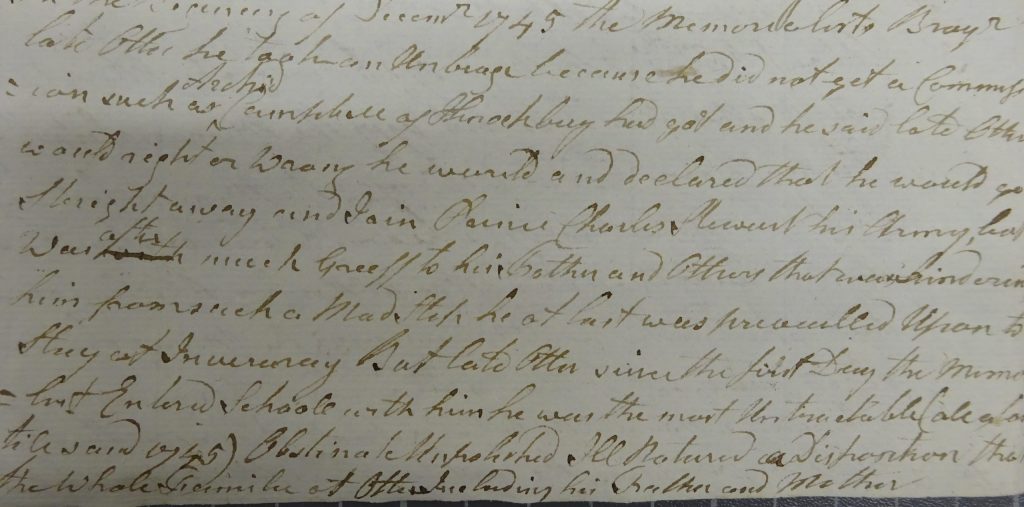 the Begining of Decemr 1745 the Memorialists Brayr
late Otter he took an Umbrage because he did not get a Commiss
= ion such as Archd Campbell of Knockbuy had got and he said late Otter
would right or wrong he would and declared that he would go
Streight away and Join Prince Charles Stewart his Army, but
Was after much Greeff to his Father and Others that was hindering
him from such a Mad Step he at last was prevailled Upon to
Stay at Inveraray But late Otter since the first Day the Memo
= list Entered Schooll with him he was the most Untractable (ale alon
till said 1745) Obstinate Unpolished Ill Natured a Disposition that
the Whole Familie at Otter Including his Father and Mother